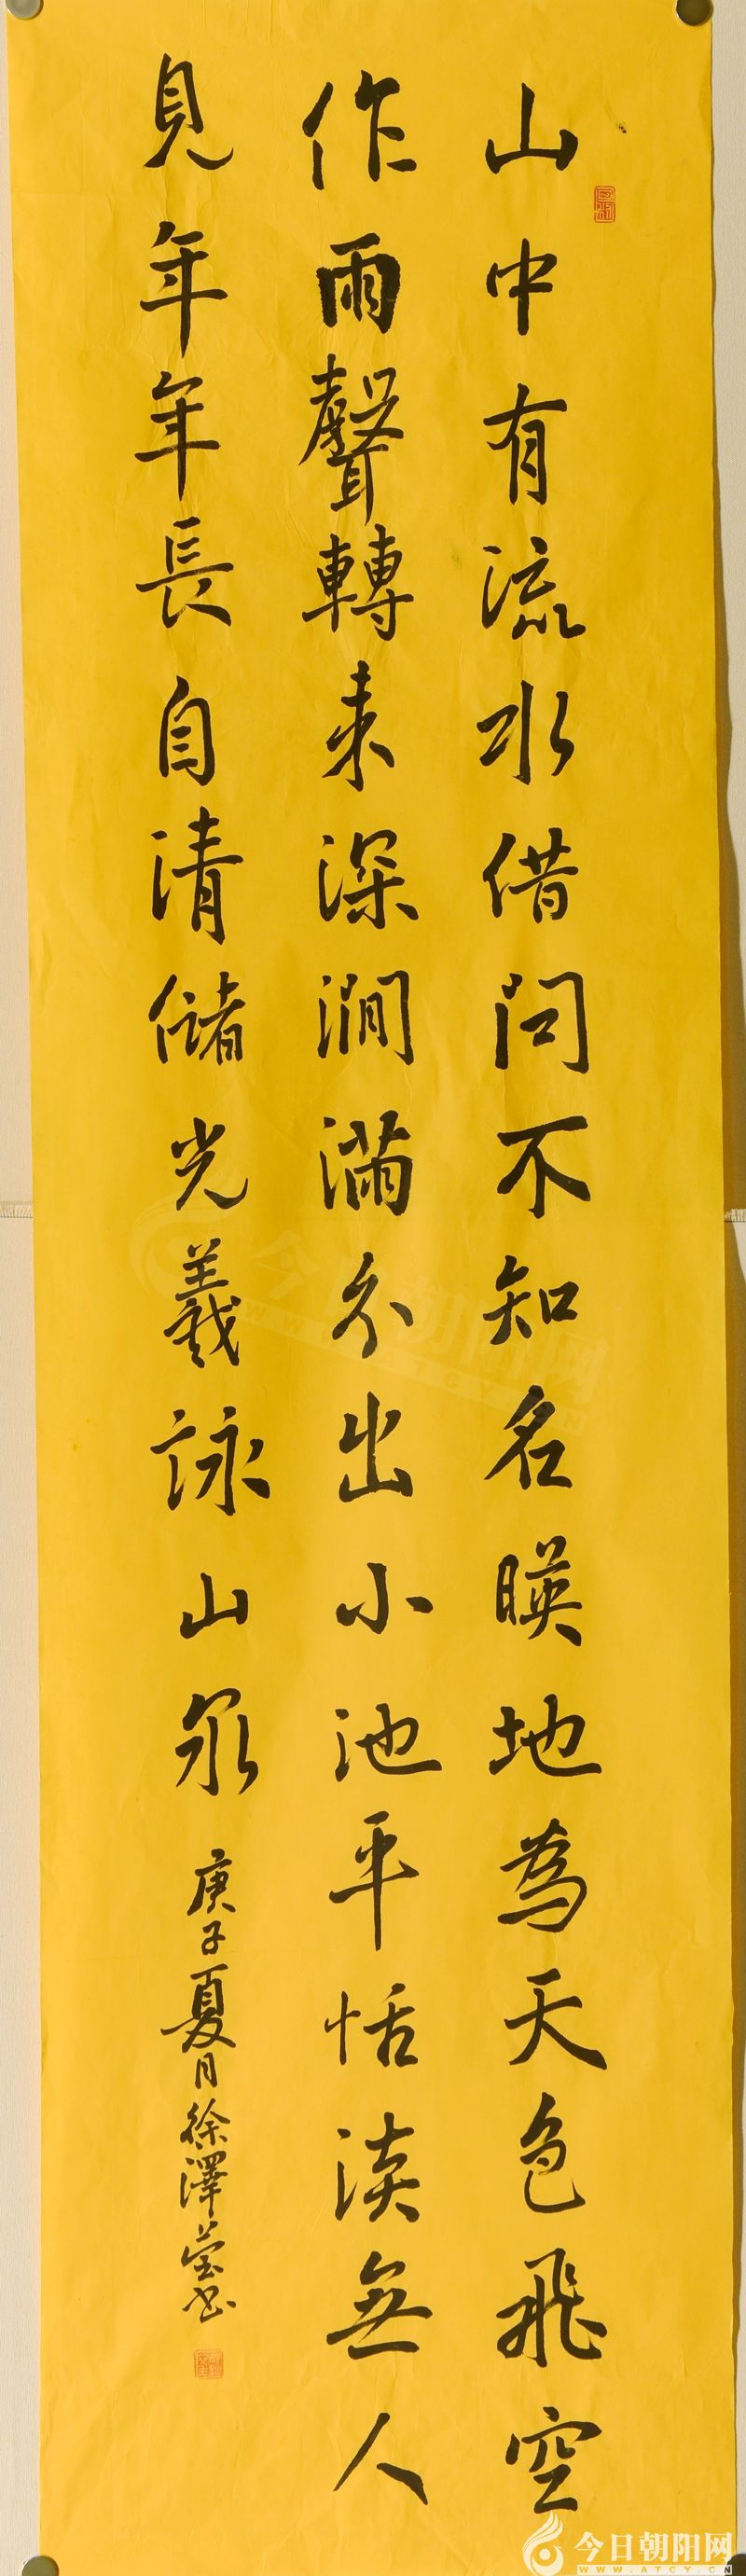 山中有流水借问不知名暎地為天色飛空
作雨聲轉来深澗满分出小池平恬淡無人
見年年長自清儲光羲詠山泉
庚子夏月徐澤莹书
今日朝阳网
WWW.ATCY.CN